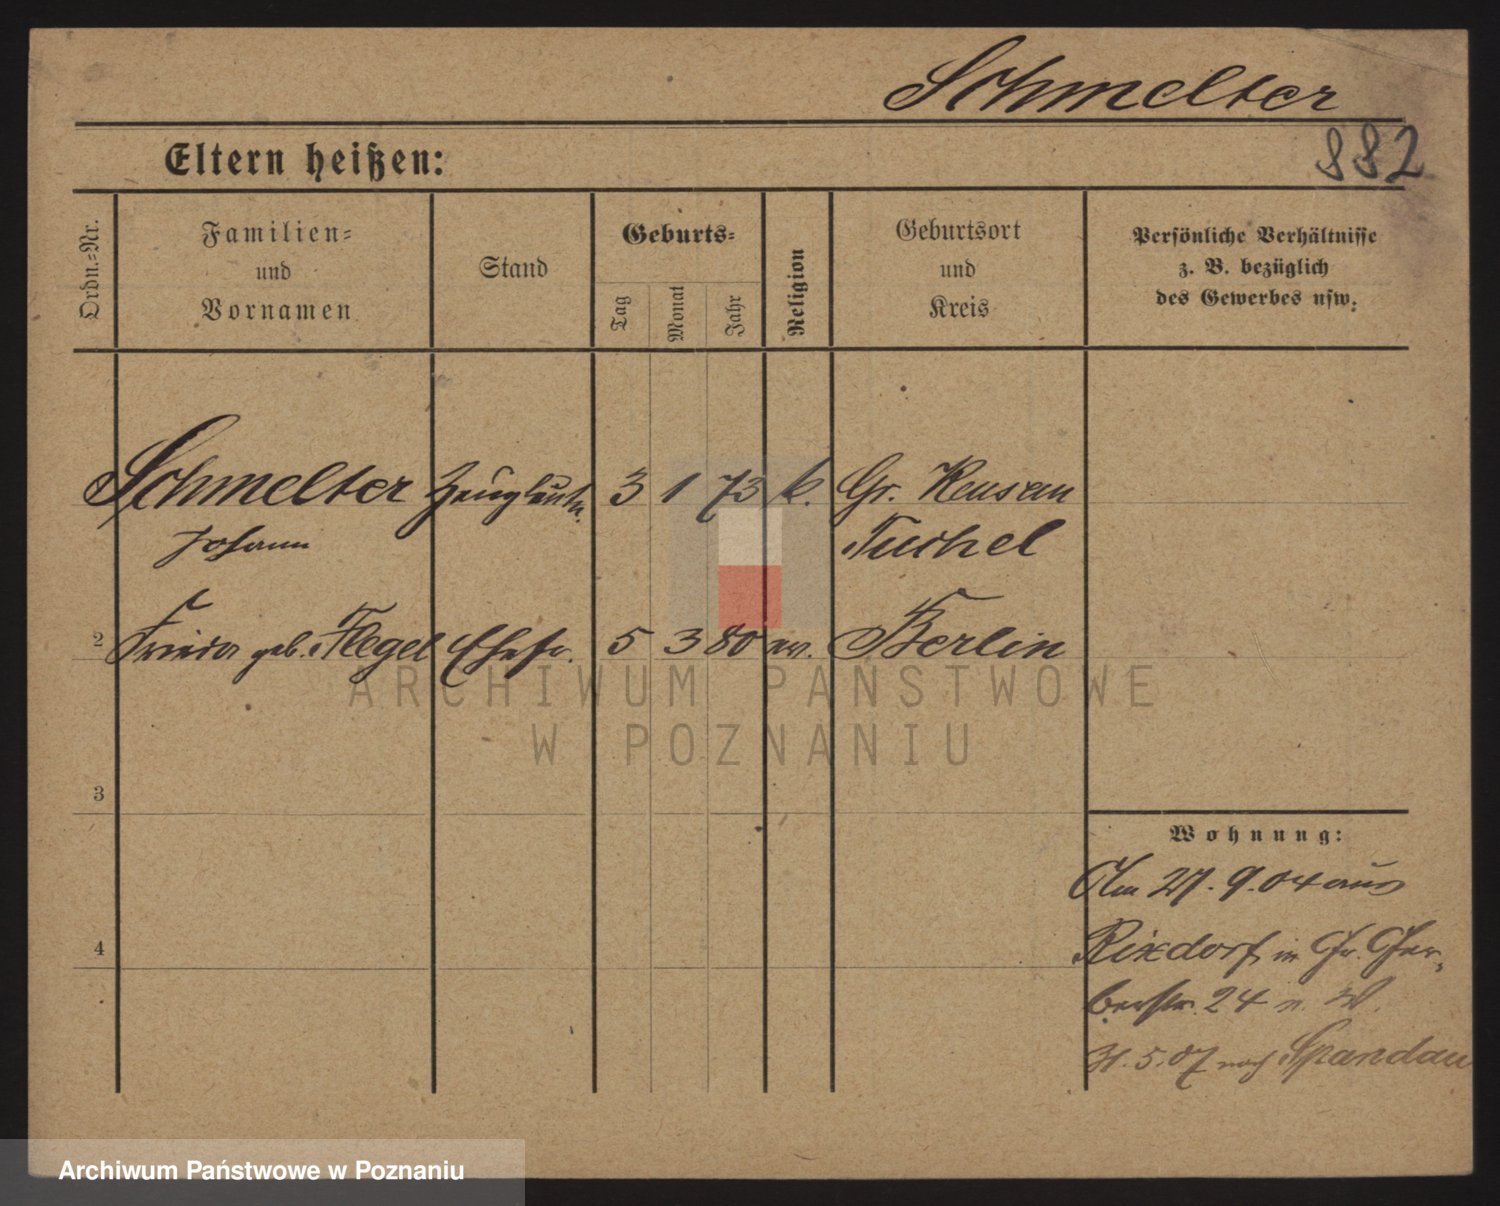 Schmelter
882
Eltern heißen:
Ordn.-Nr.
Familien-
und
Vornamen
Stand
Geburts-
Tag
Monat
Jahr
Religion
Geburtsort
und
Kreis
Persönliche Verhältnisse
z. B. bezüglich
des Gewerbes usw.
Schmelter
Johann
3 1 73 k.
Gr.
Tuchel
2
Frieda geb. Flegel Ehefr. 5 3 80 ev. Berlin
3
4
Wohnung:
Am 27. 9. 04 aus
Rixdorf in Gr. Ger-
berstr. 24 n. W.
5. 07 nach Spandau
ARCHIWUM PAŃSTWOWE
W POZNANIU
Archiwum Państwowe w Poznaniu